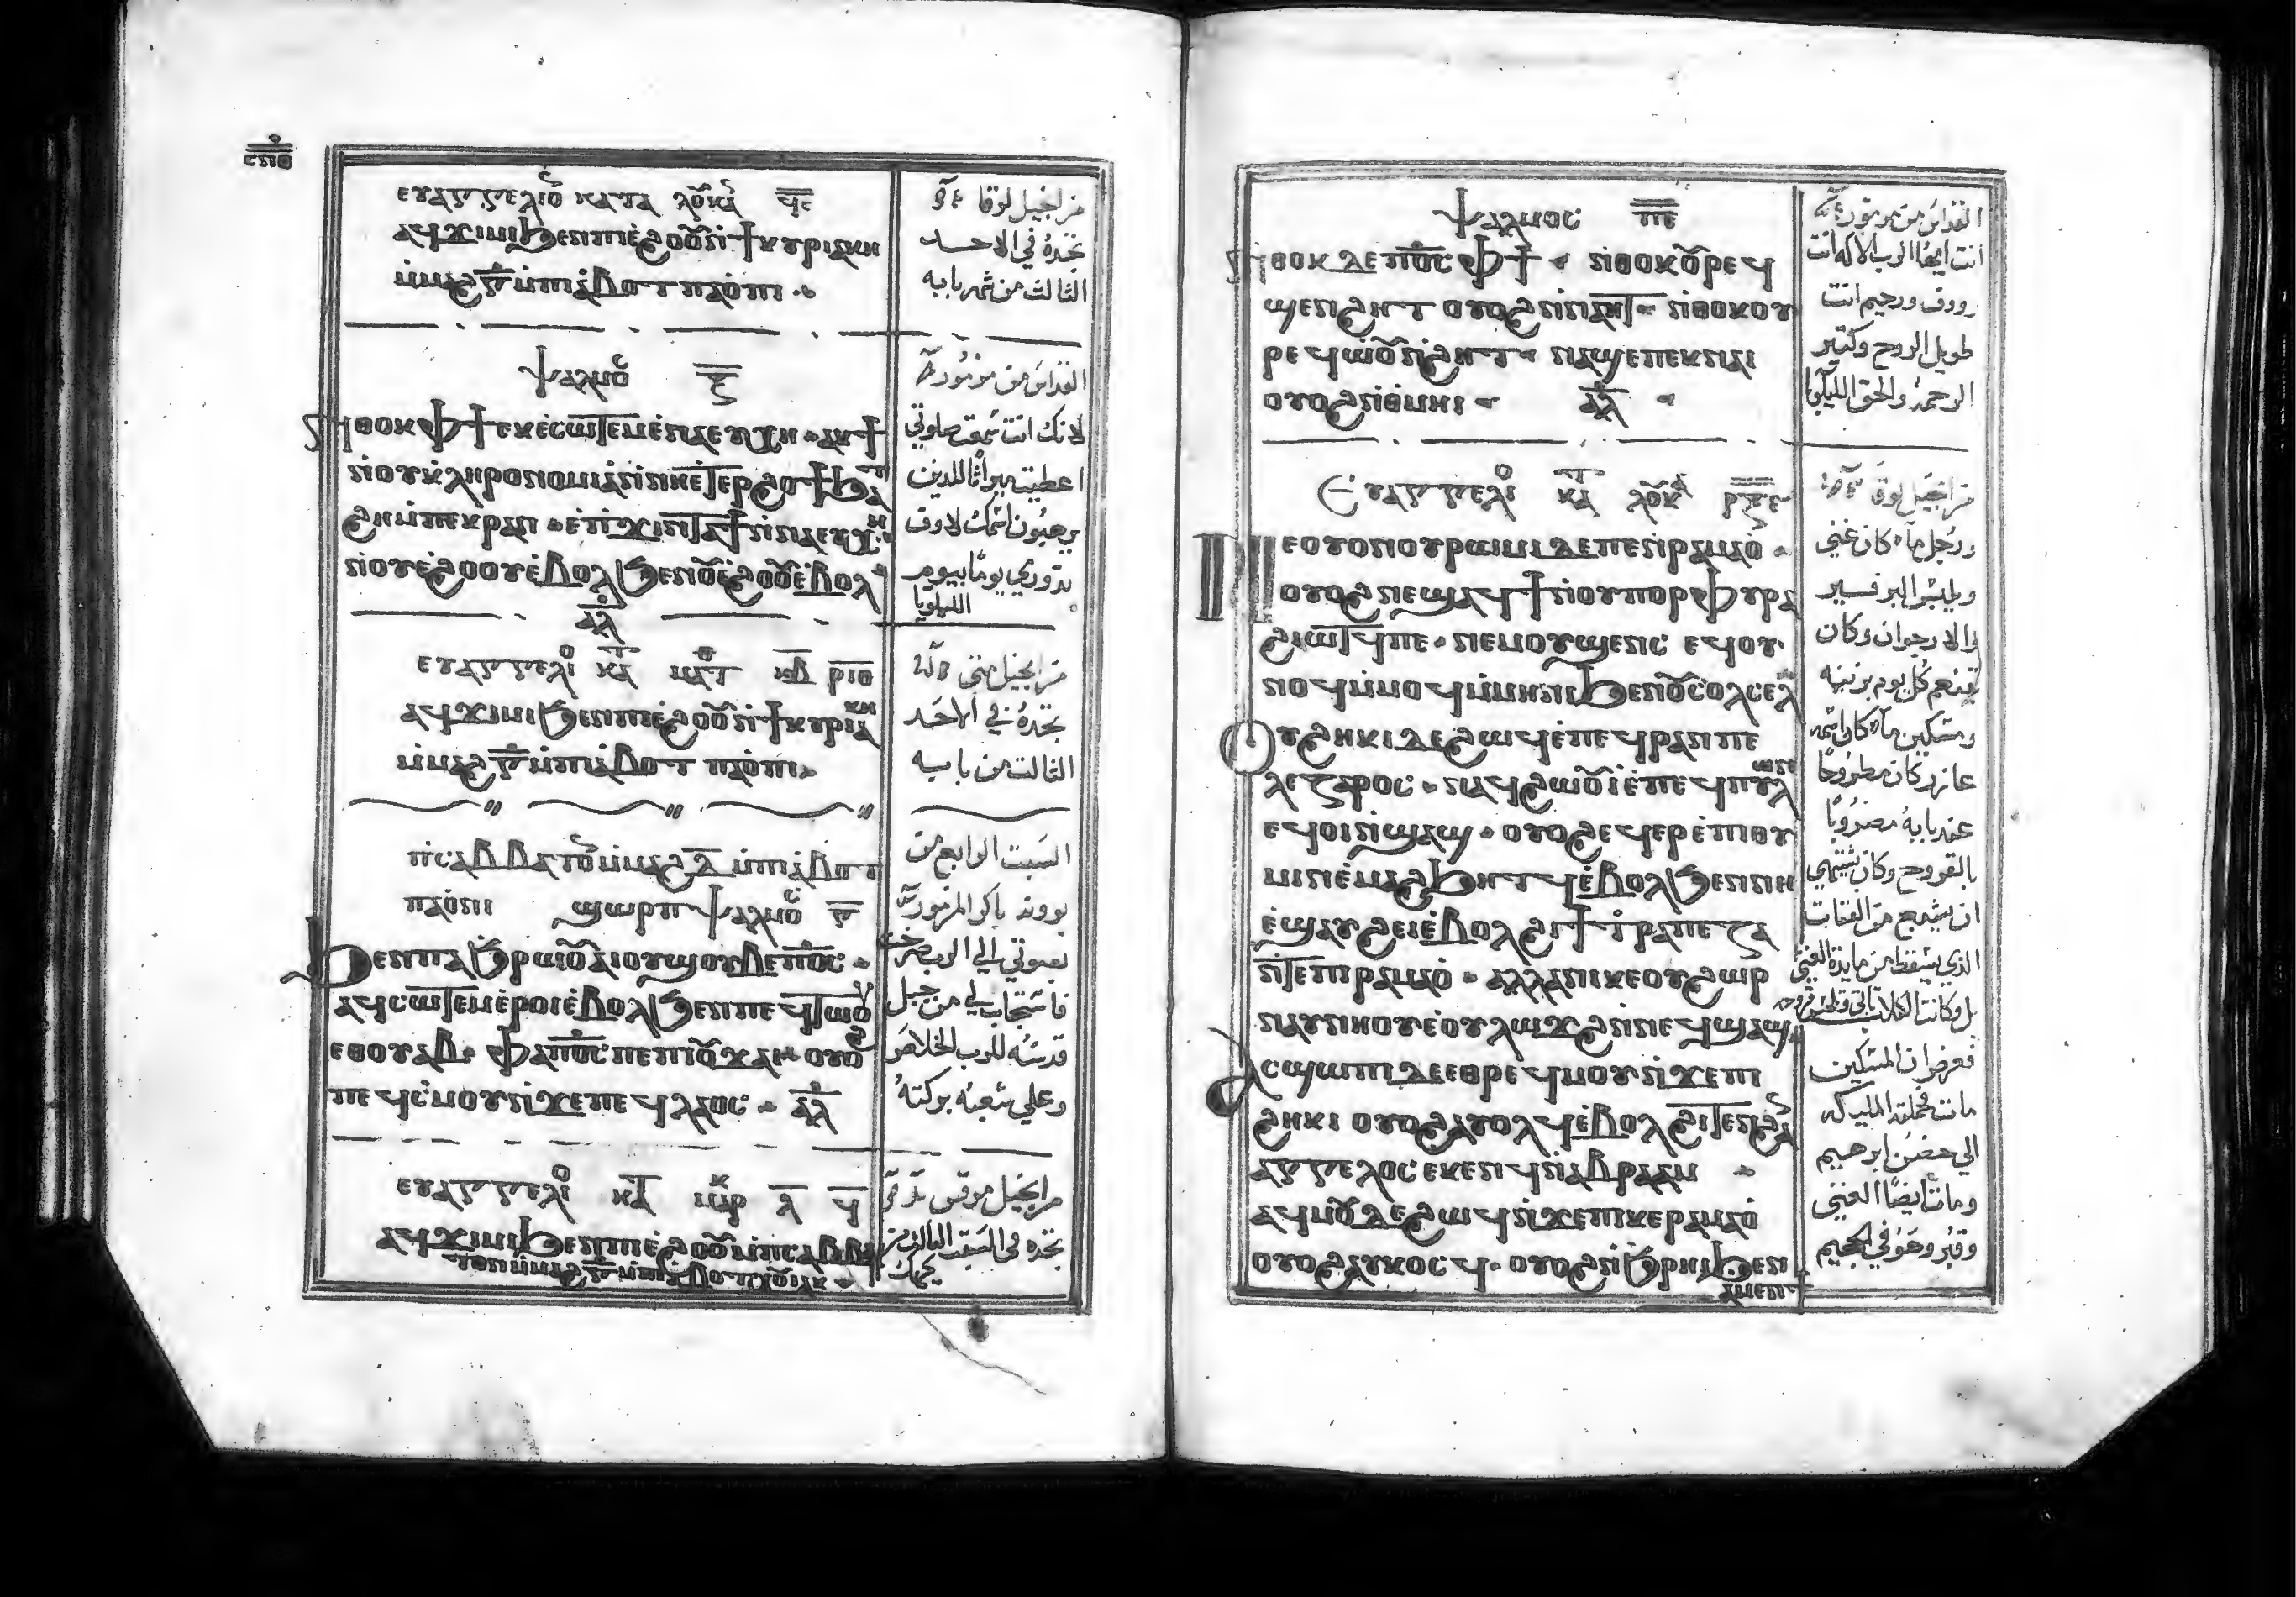 ⲥⲡⲑ
ⲉⲩⲁⲅⲅⲉⲗⲓⲟ ⲕⲁⲧⲁ ⲗⲟⲩⲕⲁ ϥⲉ
ⲁϥϫⲓⲙⲓϧⲉⲛⲡⲓⲉϩⲟⲟⲩⲛϯⲕⲩⲣⲓⲁⲕⲏ
ⲙⲙⲁϩⲅ̅ⲙⲡⲓⲁⲃⲟⲧ ⲡⲁⲟⲡⲓ
من انجيل لوقا
تجده في الاحد
الثالث من شهر بابه
ⲯⲁⲗⲙⲟⲥ ⲝ
ⲛⲑⲟⲕⲫϯⲉⲕⲉⲥⲱⲧⲉⲙⲉⲛⲁⲉⲩⲭⲏ ⲁⲕϯ
ⲛⲟⲩⲕⲗⲏⲣⲟⲛⲟⲙⲓⲁⲛⲛⲏⲉⲧⲉⲣϩⲟϯϧⲁⲧ
ϩⲏⲙⲡⲉⲕⲣⲁⲛ ⲉⲡϫⲓⲛⲧⲁϯⲛⲛⲁⲉⲩⲭⲏ
ⲛⲟⲩⲉϩⲟⲟⲩⲉⲃⲟⲗϧⲉⲛⲟⲩⲉϩⲟⲟⲩⲉⲃⲟⲗ
ⲁⲗ
القداس من مزمور
لانك انت سمعت صلوتي
اعطيت ميراثا للذين
يرهبون اسمك لاوف
ندوري يوما بيوم
الليلويا
ⲉⲩⲁⲅⲅⲉⲗⲓⲟ ⲕⲁⲧ ⲙⲁⲧ ⲕⲃ ⲣⲓⲑ
ⲁϥϫⲓⲙⲓϧⲉⲛⲡⲓⲉϩⲟⲟⲩⲛϯⲕⲩⲣⲓⲁⲕⲏ
ⲙⲙⲁϩⲅ̅ⲙⲡⲓⲁⲃⲟⲧ ⲡⲁⲟⲡⲓ
من انجيل متى
تجده في الاحد
الثالث من بابه
ⲡⲓⲥⲁⲃⲃⲁⲧⲟⲛⲙⲙⲁϩⲇ̅ⲙⲡⲓⲁⲃⲟⲧ
ⲡⲁⲟⲡⲓ ϣⲱⲣⲡ ⲯⲁⲗⲙⲟⲥ ⲅ
ϧⲉⲛⲡⲁϧⲣⲱⲟⲩⲁⲓⲟⲩϣⲟⲩⲃⲉⲡⲟⲥ
ⲁϥⲥⲱⲧⲉⲙⲉⲣⲟⲓⲉⲃⲟⲗϧⲉⲛⲡⲉϥⲧⲱⲟⲩ
ⲉⲑⲟⲩⲁⲃ ⲫⲁⲡⲟⲥⲡⲉⲡⲓⲟⲩϫⲁⲓ ⲟⲩⲟϩ
ⲡⲉϥⲥⲙⲟⲩⲛϫⲉⲡⲉϥⲗⲁⲟⲥ ⲁⲗ
السبت الرابع من
باكر المزمور
بصوتي الى الرب صرخت
فاستجاب لي من جبل
قدسه للرب الخلاص
وعلى شعبه بركته
ⲉⲩⲁⲅⲅⲉⲗⲓⲟ ⲕⲁⲧ ⲙⲁⲣⲕ ⲗ ϥ
ⲁϥϫⲓⲙⲓϧⲉⲛⲡⲓⲉϩⲟⲟⲩⲙⲡⲥⲁⲃⲃⲁ
ⲧⲟⲛⲙⲙⲁϩⲅ̅ⲙⲡⲓⲁⲃⲟⲧⲭⲟⲓⲁⲕ
من انجيل مرقس
تجده في السبت الثالث من
كيهك
ⲯⲁⲗⲙⲟⲥ ⲡⲉ
ⲛⲑⲟⲕⲇⲉⲡⲟⲥⲫϯ ⲛⲑⲟⲕⲟⲩⲣⲉϥ
ϣⲉⲛϩⲏⲧ ⲟⲩⲟϩⲛⲛⲁⲏⲧ ⲛⲑⲟⲕⲟⲩ
ⲣⲉϥⲱⲟⲩⲛϩⲏⲧ ⲛⲁϣⲉⲡⲉⲕⲛⲁⲓ
ⲟⲩⲟϩⲛⲑⲙⲏⲓ ⲁⲗ
القداس من مزمور
انت ايها الرب الاله انت
روف ورحيم انت
طويل الروح وكثير
الرحمة والحق الليلويا
ⲉⲩⲁⲅⲅⲉⲗⲓⲟ ⲕⲁⲧ ⲗⲟⲩⲕⲁ ⲣⲝⲉ
ⲛⲉⲟⲩⲟⲛⲟⲩⲣⲱⲙⲓⲇⲉⲡⲉⲛⲣⲁⲙⲁⲟ
ⲟⲩⲟϩⲛⲉϣⲁϥϯⲛⲟⲩⲡⲟⲣⲫⲩⲣⲁ
ϩⲓⲱⲧϥⲡⲉ ⲛⲉⲙⲟⲩϣⲉⲛⲥ ⲉϥⲟⲩ
ⲛⲟϥⲙⲙⲟϥⲙⲙⲏⲛⲓϧⲉⲛⲟⲩⲥⲟⲗⲥⲉⲗ
ⲟⲩϩⲏⲕⲓⲇⲉϩⲱϥⲉⲡⲉϥⲣⲁⲛⲡⲉ
ⲗⲉⲍⲁⲣⲟⲥ ⲛⲁϥϩⲱⲟⲩⲓⲉⲡⲉϥⲡⲩⲗⲱⲛ
ⲉϥⲟⲓⲛϣⲁϣ ⲟⲩⲟϩⲉϥⲉⲣⲉⲡⲓⲑⲩ
ⲙⲓⲛⲉⲙⲁϩϧⲏⲧϥⲉⲃⲟⲗϧⲉⲛⲛⲏ
ⲉϣⲁⲩϩⲉⲓⲉⲃⲟⲗϩⲓϯⲧⲣⲁⲡⲉⲍⲁ
ⲛⲧⲉⲡⲓⲣⲁⲙⲁⲟ ⲁⲗⲗⲁⲛⲓⲕⲉⲟⲩϩⲱⲣ
ⲛⲁⲩⲛⲏⲟⲩⲉⲟⲩⲗⲱϫϩⲛⲛⲉϥϣⲁϣ
ⲁⲥϣⲱⲡⲓⲇⲉⲉⲑⲣⲉϥⲙⲟⲩⲛϫⲉⲡⲓ
ϩⲏⲕⲓ ⲟⲩⲟϩⲁⲩⲟⲗϥⲉⲃⲟⲗϩⲓⲧⲉⲛϩⲁ
ⲁⲅⲅⲉⲗⲟⲥⲉⲕⲉⲛϥⲛⲁⲃⲣⲁⲁⲙ
ⲁϥⲙⲟⲩⲇⲉϩⲱϥⲛϫⲉⲡⲓⲕⲉⲣⲁⲙⲁⲟ
ⲟⲩⲟϩⲁⲩⲕⲟⲥϥ ⲟⲩⲟϩⲛϧⲣⲏⲓϧⲉⲛ
ⲁⲙⲉⲛϯ
من انجيل لوقا
ورجل ما كان غني
ويلبس البرفير
والارجوان وكان
يتنعم كل يوم بزينه
ومسكين ما كان اسمه
عازر كان مطروحا
عند بابه مضروبا
بالقروح وكان يشتهي
ان يشبع من الفتات
الذي يسقط من مايدة الغني
بل وكانت الكلاب تاتي وتلحس قروحه
فعرض ان المسكين
مات فحملته المليكه
الى حضن ابرهيم
ومات ايضا الغني
وقبر وهو في الجحيم